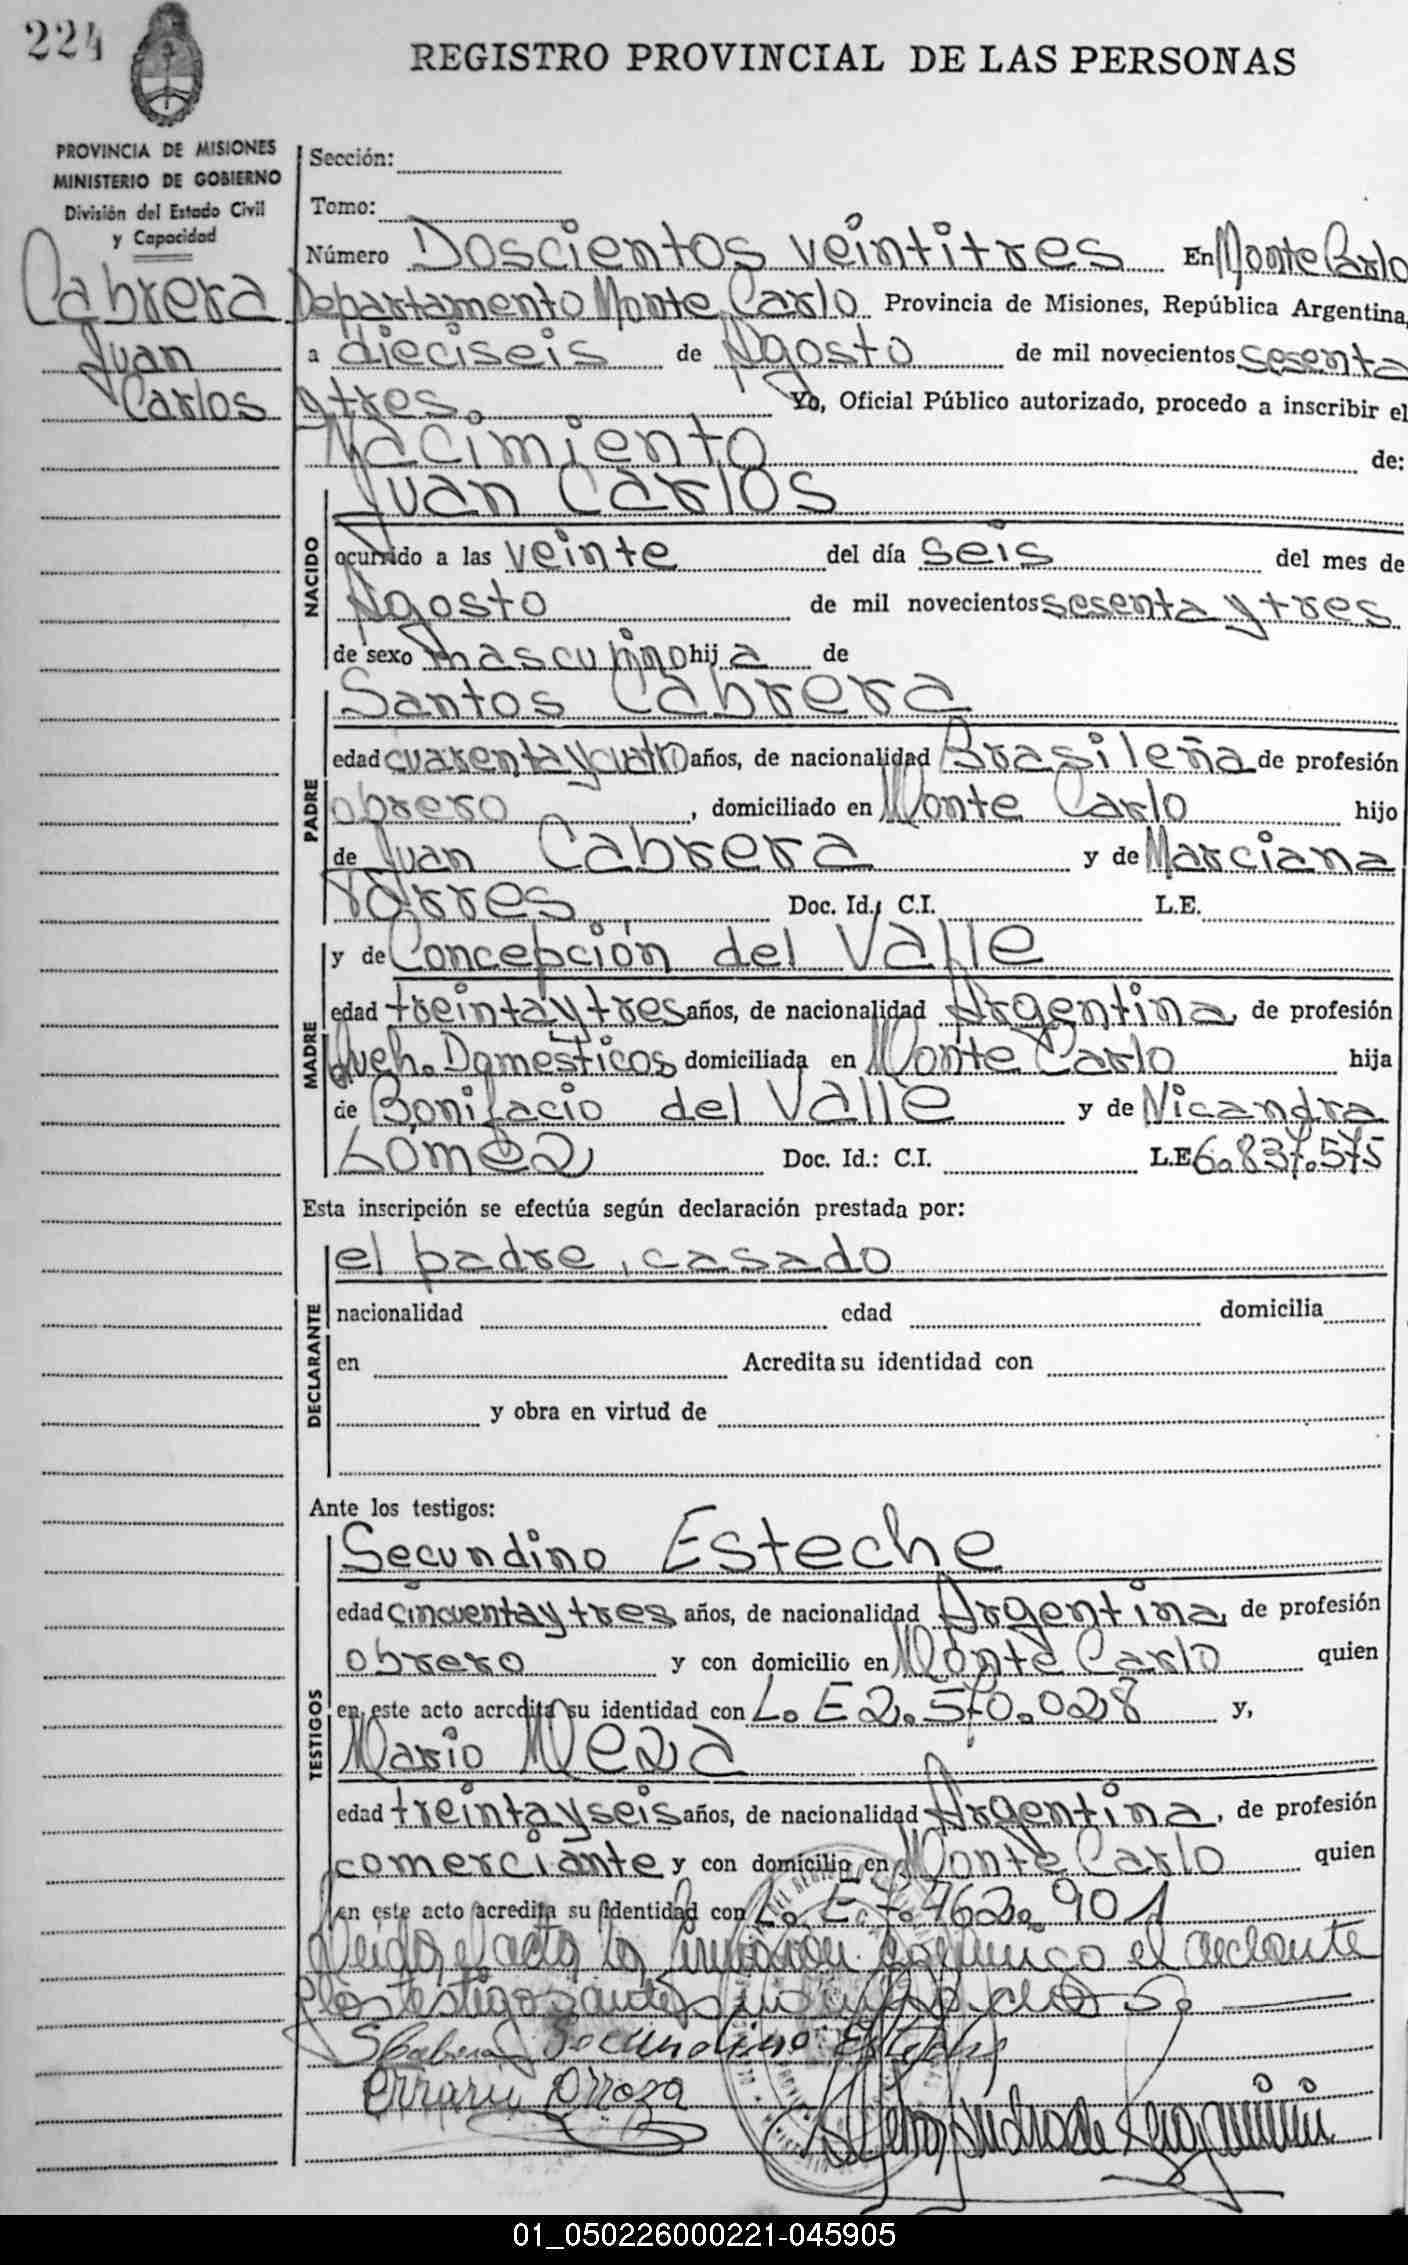 224
REGISTRO PROVINCIAL DE LAS PERSONAS
PROVINCIA DE MISIONES
MINISTERIO DE GOBIERNO
División del Estado Civil
y Capacidad
Cabrera
Juan
Carlos
Sección:
Tomo:
Número Doscientos veintitres En Monte Carlo
Departamento Monte Carlo Provincia de Misiones, República Argentina,
a dieciseis de Agosto de mil novecientos sesenta
y tres. Yo, Oficial Público autorizado, procedo a inscribir el
Nacimiento de:
NACIDO
Juan Carlos
ocurrido a las veinte del día seis del mes de
Agosto de mil novecientos sesenta y tres
de sexo masculino hij a de
PADRE
Santos Cabrera
edad cuarenta y cuatro años, de nacionalidad Brasileña de profesión
obrero, domiciliado en Monte Carlo hijo
de Juan Cabrera y de Marciana
Torres Doc. Id.: C.I. L.E.
MADRE
y de Concepción del Valle
edad treinta y tres años, de nacionalidad Argentina, de profesión
Queh. Domésticos domiciliada en Monte Carlo hija
de Bonifacio del Valle y de Nicandra
Doc. Id.: C.I. L.E 6.837.575
Esta inscripción se efectúa según declaración prestada por:
DECLARANTE
el padre, casado
nacionalidad edad domicilia
en Acredita su identidad con
y obra en virtud de
Ante los testigos:
TESTIGOS
Secundino Esteche
edad cincuenta y tres años, de nacionalidad Argentina, de profesión
obrero y con domicilio en Monte Carlo quien
en este acto acredita su identidad con L. E 2.570.028 y,
Mario Meza
edad treinta y seis años, de nacionalidad Argentina, de profesión
comerciante y con domicilio en Monte Carlo quien
en este acto acredita su identidad con L. E. 7.462.901
Leida el acta la el
y los testigos
S Cabrera Secundino Esteche
01_050226000221-045905